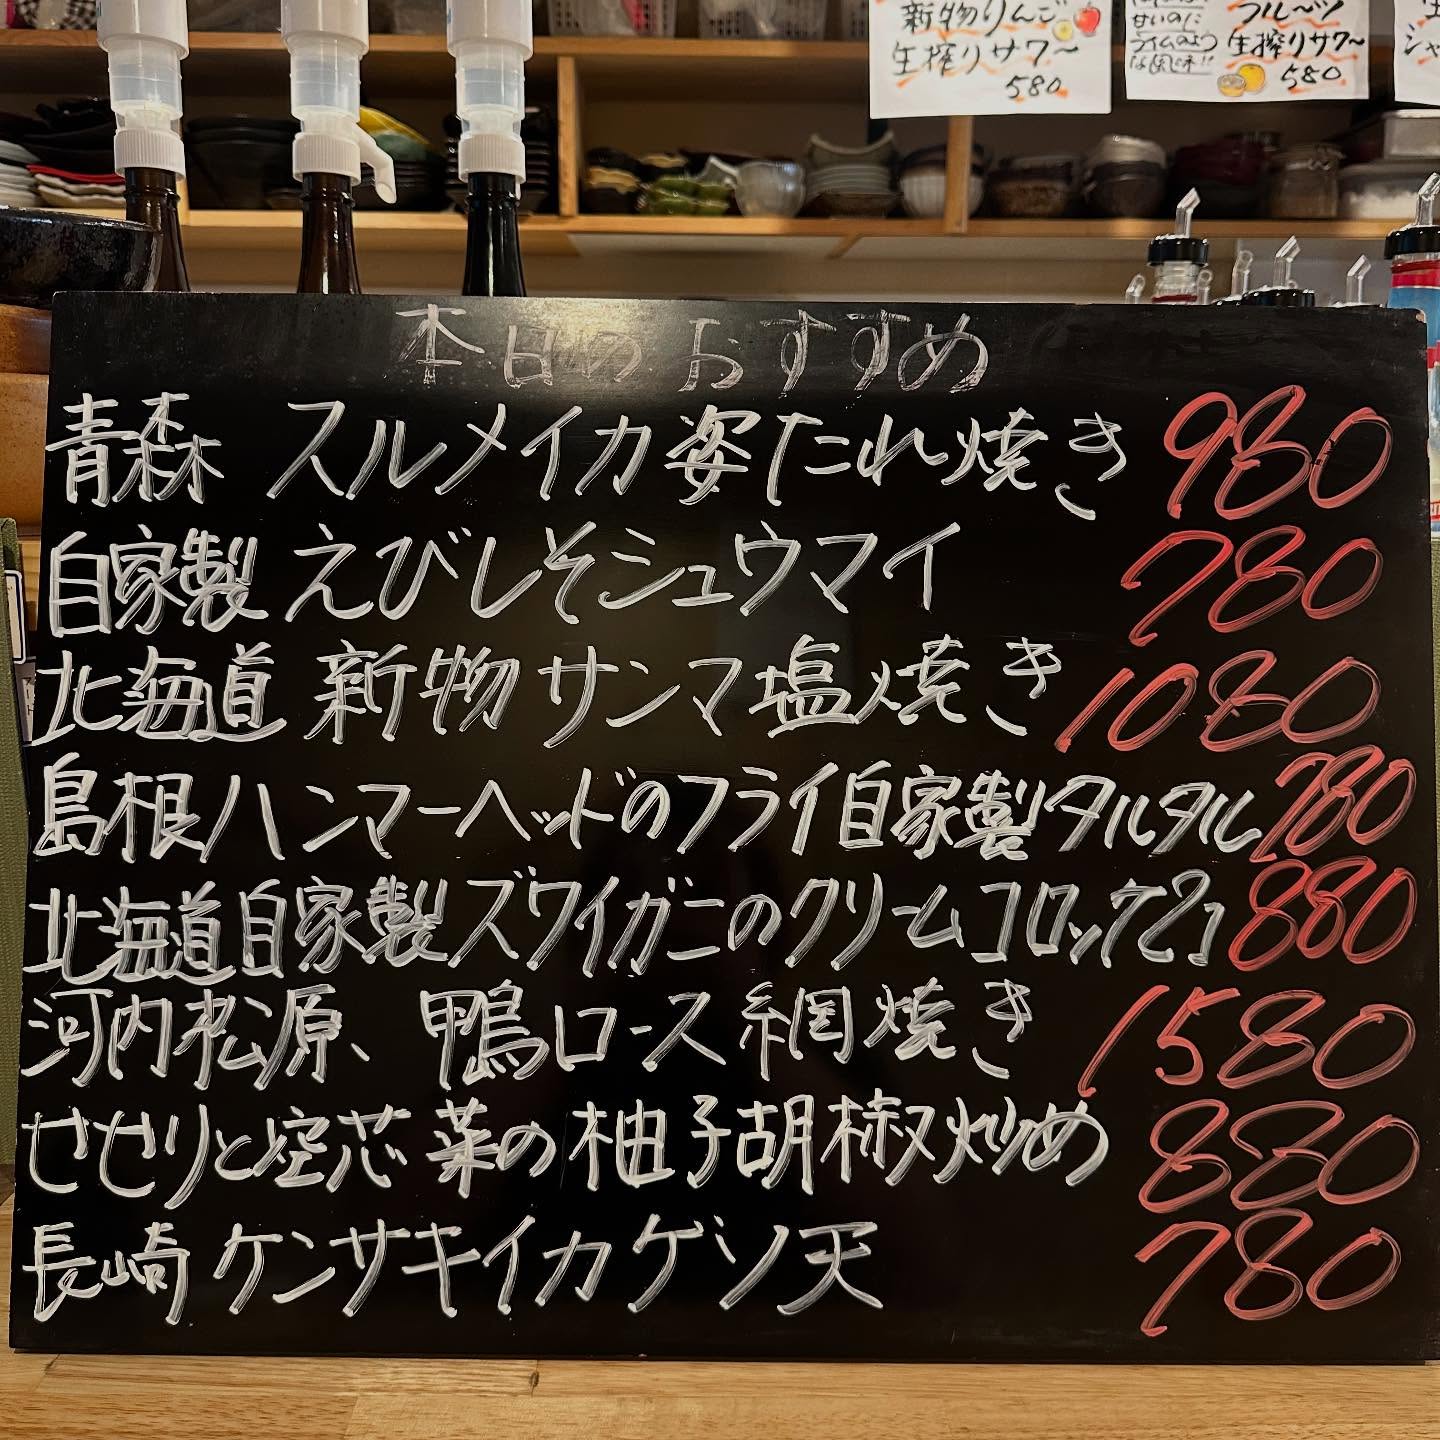 新物りんご
生搾りサワー
580
甘いのに
ライムのよう
な風味!!
フルーツ
生搾りサワー
580
本日のおすすめ
青森 スルメイカ姿たれ焼き 980
自家製 えびしそシュウマイ 780
北海道 新物サンマ塩焼き 1080
島根ハンマーヘッドのフライ自家製タルタル 780
北海道自家製ズワイガニのクリームコロッケ2コ 880
河内松原、鴨ロース網焼き 1580
せせりと空芯菜の柚子胡椒炒め 880
長崎 ケンサキイカゲソ天 780